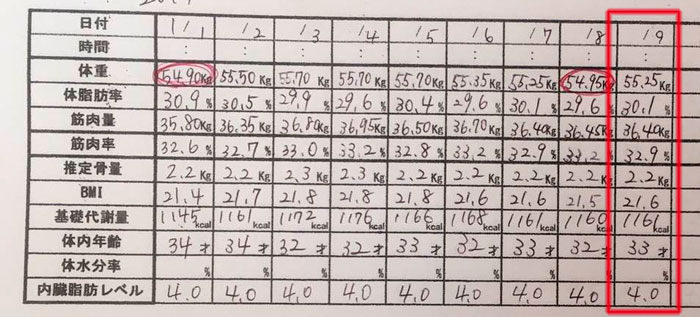 日付 1/1 /2 /3 /4 /5 /6 /7 /8 /9
時間 : : : : : : : : :
体重 54.90Kg 55.50Kg 55.70Kg 55.70Kg 55.70Kg 55.35Kg 55.25Kg 54.95Kg 55.25Kg
体脂肪率 30.9% 30.5% 29.9% 29.6% 30.4% 29.6% 30.1% 29.6% 30.1%
筋肉量 35.80Kg 36.35Kg 36.80Kg 36.95Kg 36.50Kg 36.70Kg 36.40Kg 36.45Kg 36.40Kg
筋肉率 32.6% 32.7% 33.0% 33.2% 32.8% 33.2% 32.9% 33.2% 32.9%
推定骨量 2.2Kg 2.2Kg 2.3Kg 2.3Kg 2.2Kg 2.2Kg 2.2Kg 2.2Kg 2.2Kg
BMI 21.4 21.7 21.8 21.8 21.8 21.6 21.6 21.5 21.6
基礎代謝量 1145kcal 1161kcal 1172kcal 1176kcal 1166kcal 1168kcal 1161kcal 1160kcal 1161kcal
体内年齢 34才 34才 32才 32才 33才 32才 33才 32才 33才
体水分率 % % % % % % % % %
内臓脂肪レベル 4.0 4.0 4.0 4.0 4.0 4.0 4.0 4.0 4.0